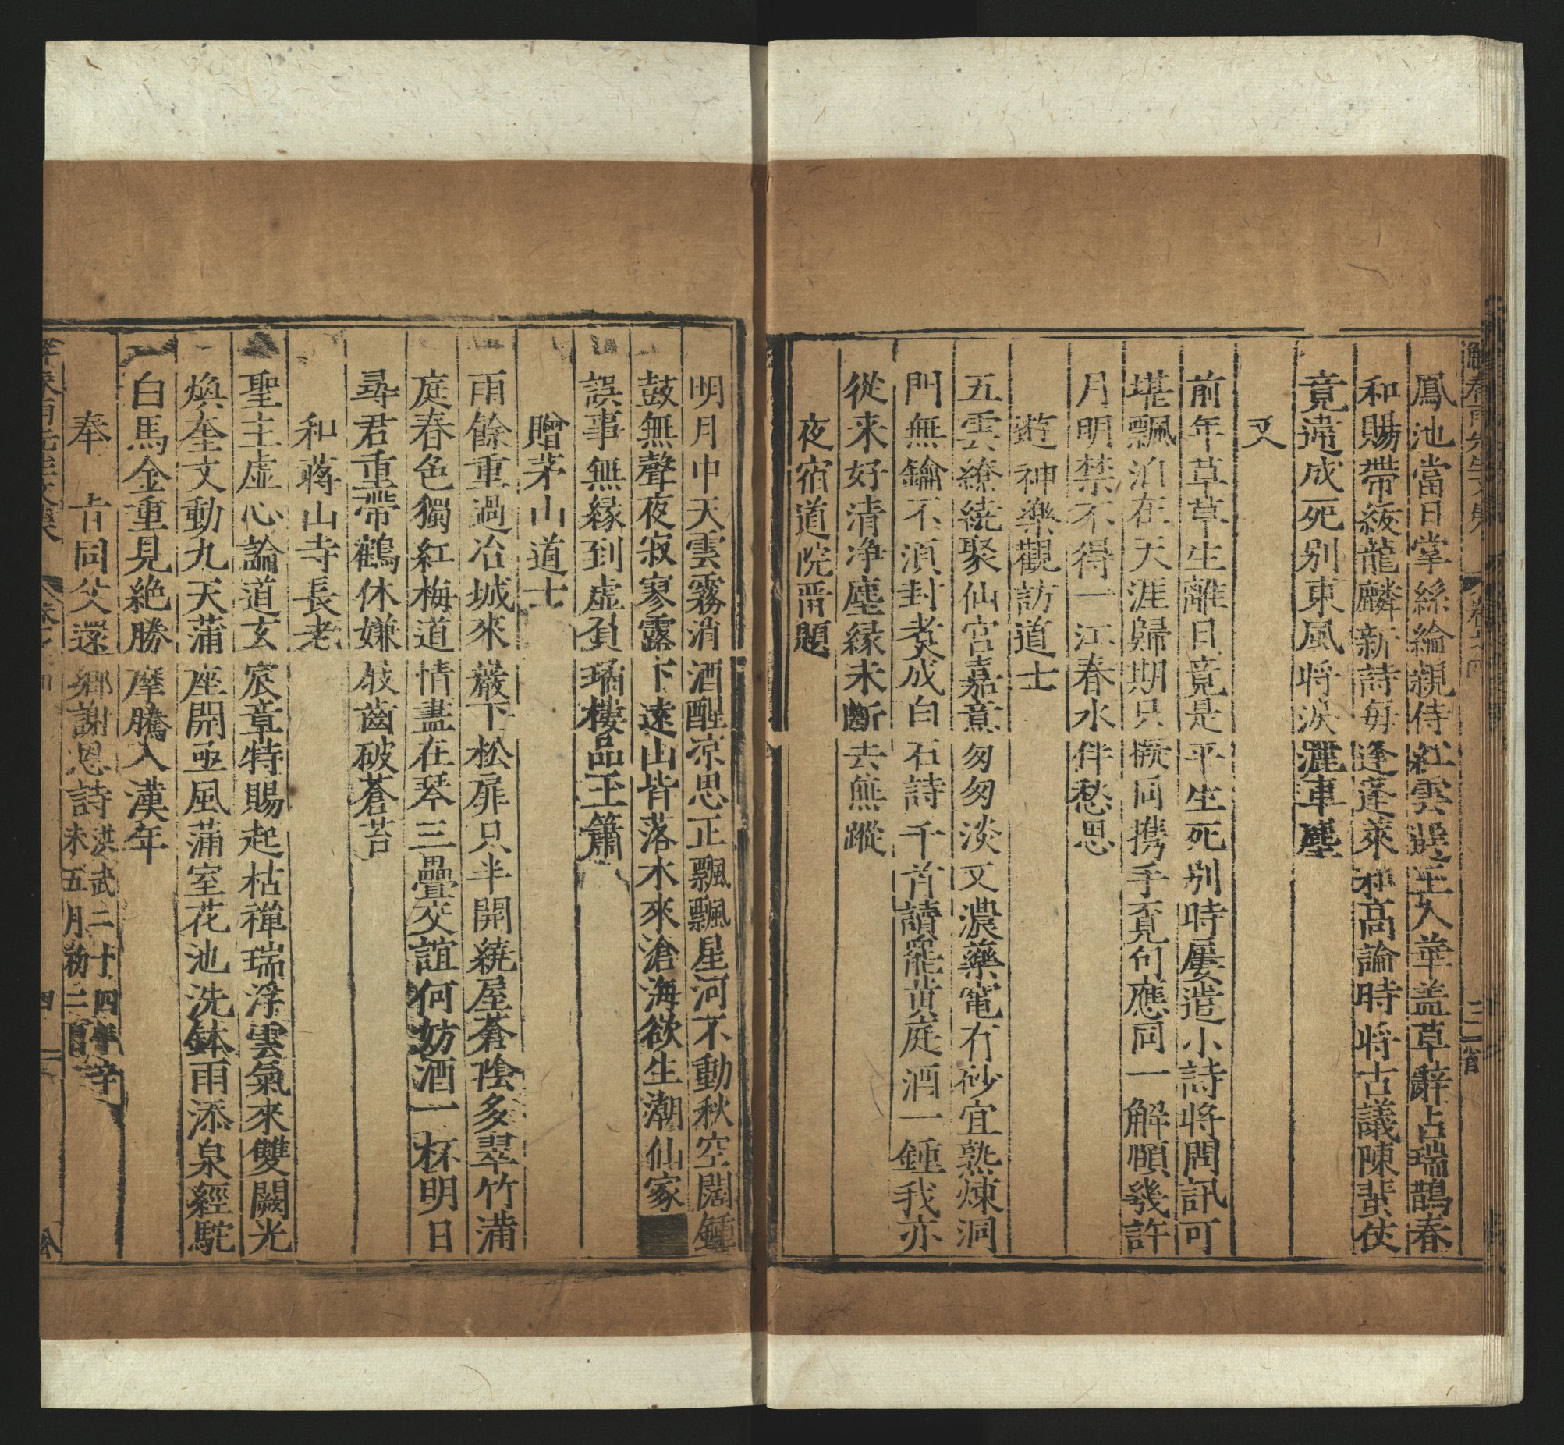 解春雨先生文集 卷之四
鳳池當日掌絲綸親侍紅雲玉人華盖草辭占瑞鵲春
和賜帶綴龍麟新詩每逢蓬萊和高論時將古議陳蜚佞
竟遠成死别東風將淚灑車塵
又
前年草草生離日竟是平生死别時屢遣小詩將問訊可
堪飄泊在天涯歸期只擬同携手覔句應同一解頤幾許
月明禁不得一江春水伴愁思
遊神樂觀訪道士
五雲繚繞聚仙宮嘉意匆匆淡又濃藥竃有砂宜熟煉洞
門無鑰不須封煑成白石詩千首讀罷黄庭酒一鍾我亦
從來好清净塵緣未斷去無蹤
夜宿道院畱題
明月中天雲霧消酒醒凉思正飄飄星河不動秋空闊鍾
鼓無聲夜寂寥露下遠山皆落木來滄海欲生潮仙家
誤事無緣到虛負璚樓品玉簫
贈茅山道士
雨餘重過冶城來巖下松扉只半開繞屋蒼陰多翠竹滿
庭春色獨紅梅道情盡在琴三疊交誼何妨酒一杯明日
尋君重帶鶴休嫌屐齒破蒼苔
和蔣山寺長老
聖主虛心論道玄宸章特賜起枯禪瑞浮雲氣來雙闕光
煥奎文動九天蒲座開亟風蒲室花池洗鉢雨添泉經駝
白馬金重見絶勝摩騰入漢年
奉 旨同父還鄉謝恩詩洪武二十四年辛
未五月初二首
解春雨先生文集 卷之四